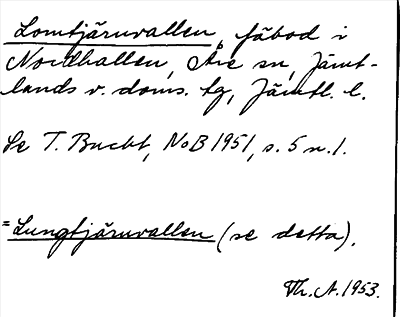 Lomtjärnvallen, fäbod i
Nordhallen, Åre sn, Jämt-
lands v. doms. tg, Jämtl. l.
Se T. Bucht, NoB 1951, s. 5 n. 1.
= Lungtjärnvallen (se detta).
Th. A. 1953.